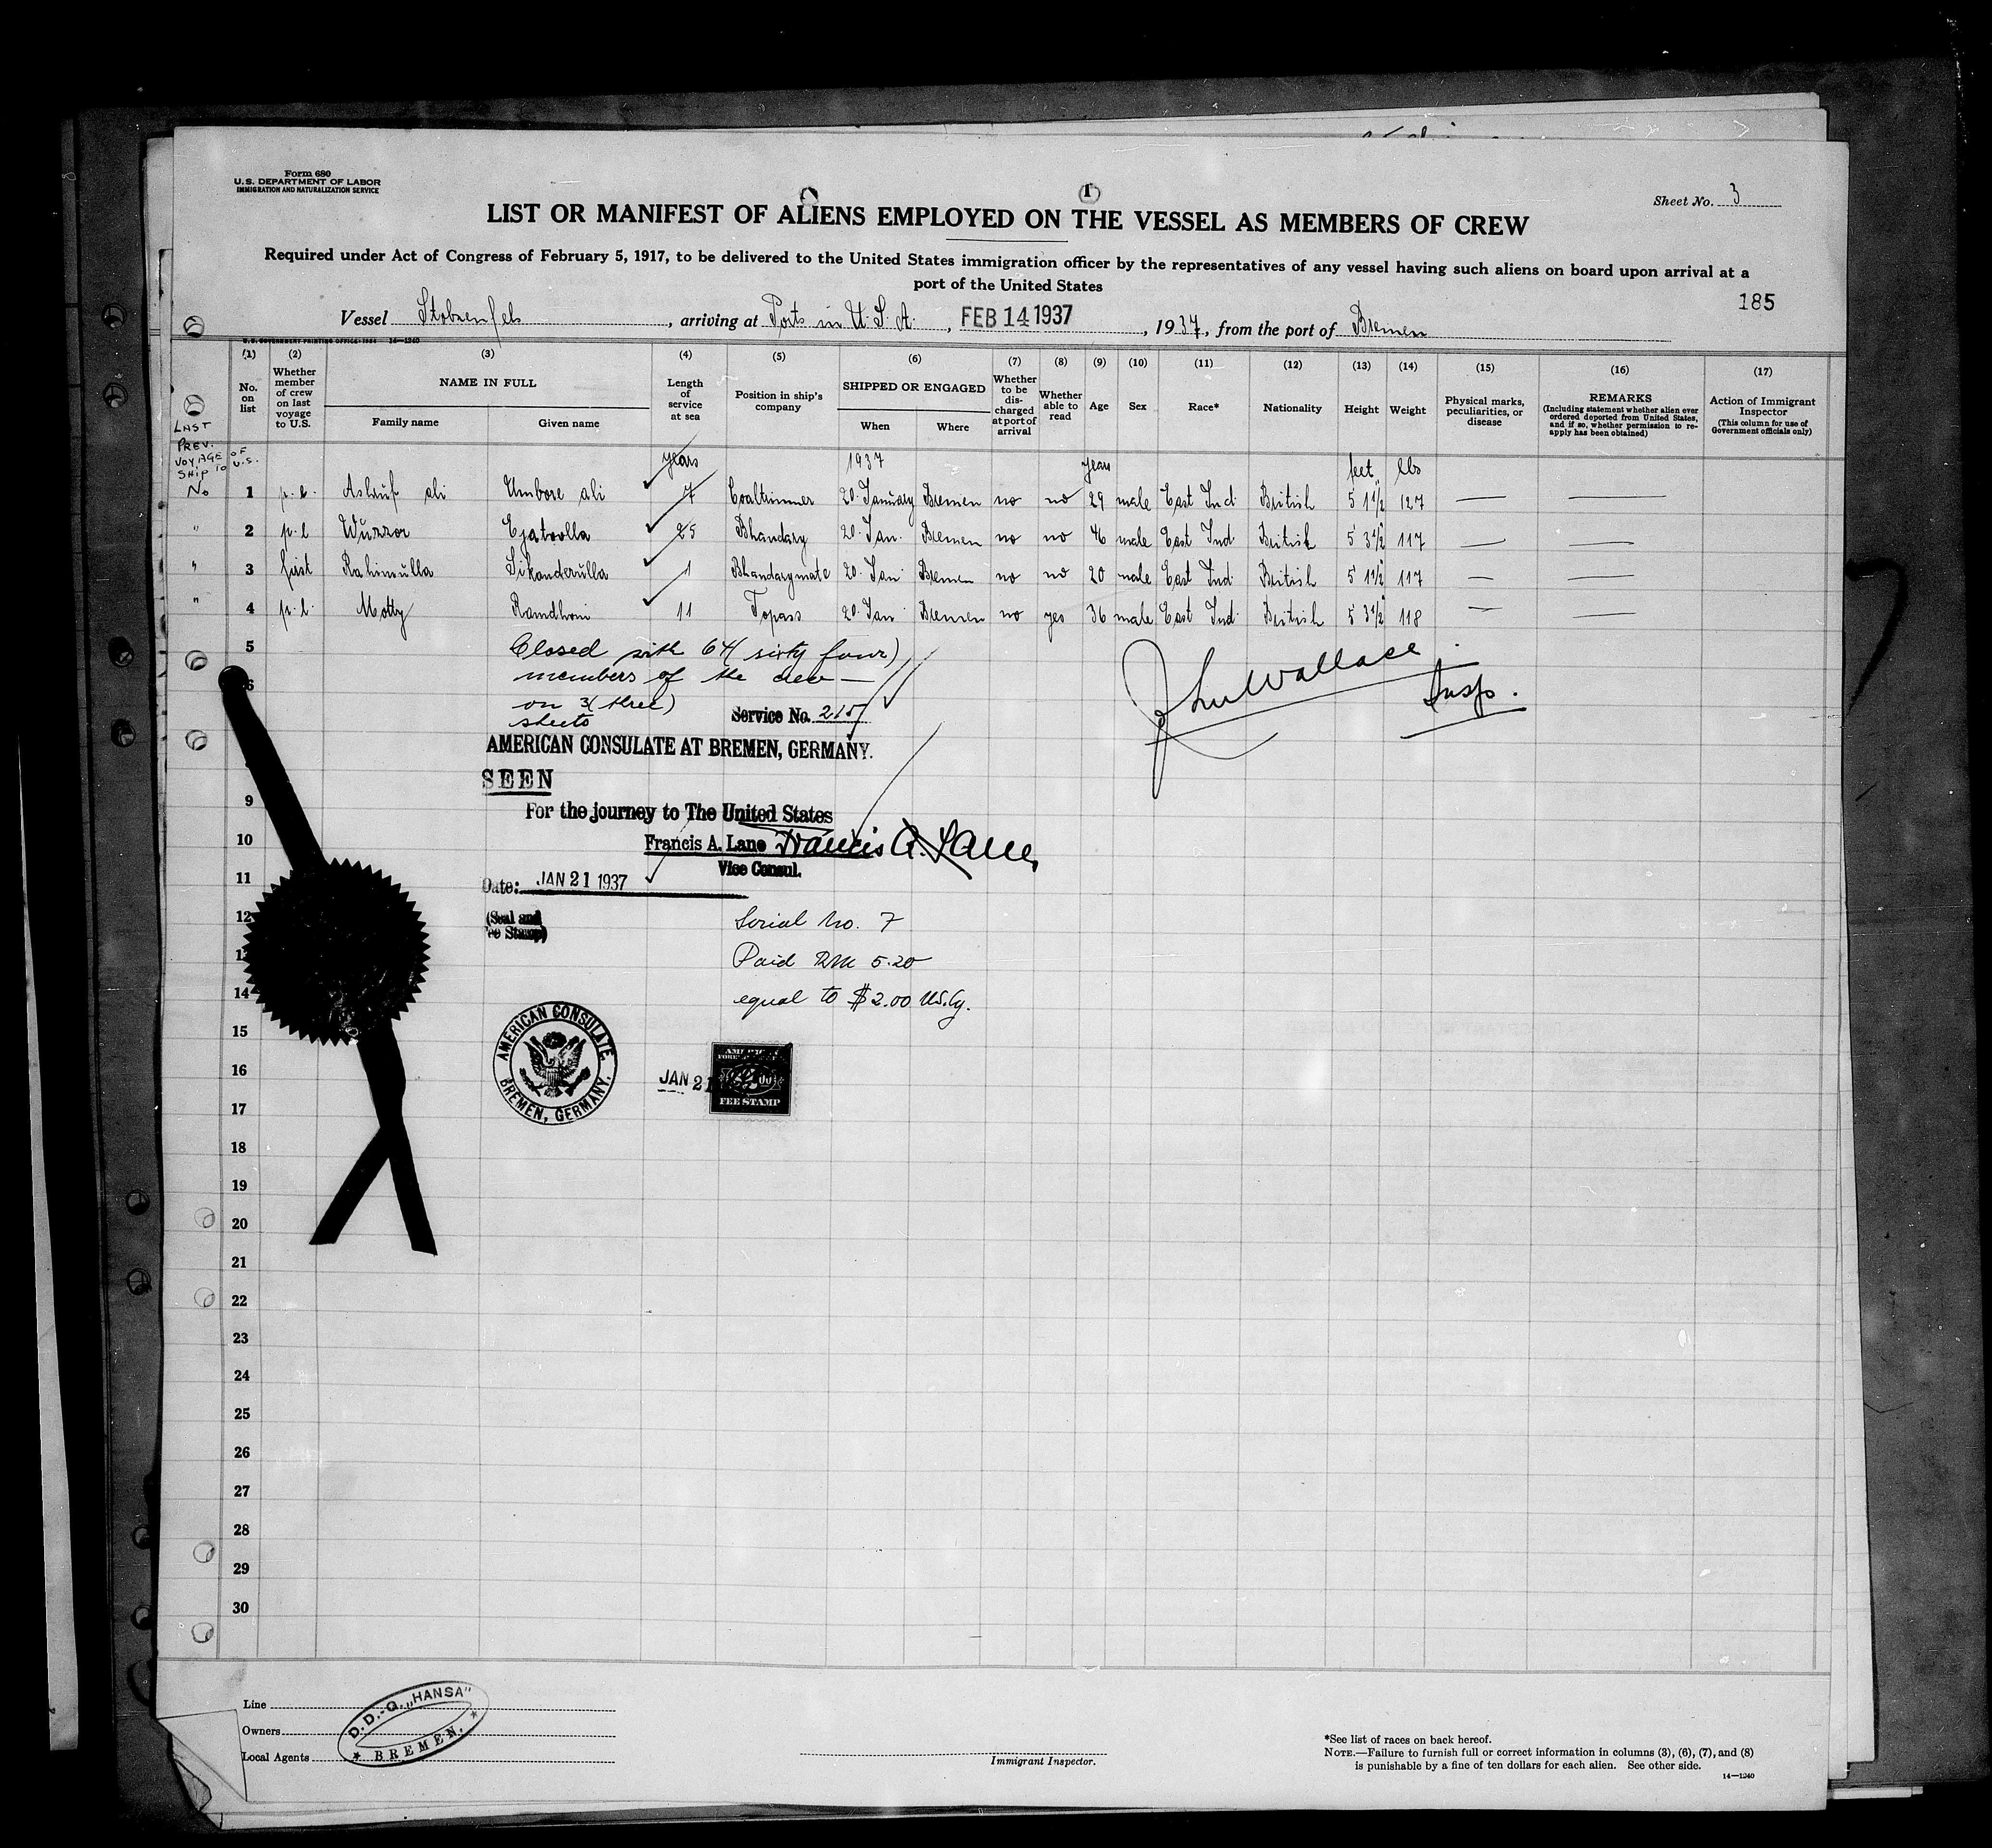 Form 680
U.S. DEPARTMENT OF LABOR
IMMIGRATION AND NATURALIZATION SERVICE
Sheet No. 3
LIST OR MANIFEST OF ALIENS EMPLOYED ON THE VESSEL AS MEMBERS OF CREW
Required under Act of Congress of February 5, 1917, to be delivered to the United States immigration officer by the representatives of any vessel having such aliens on board upon arrival at a
port of the United States
185
Vessel Stolzenfels, arriving at Ports in U.S.A., FEB 14 1937, 1937, from the port of Bremen
U.S. GOVERNMENT PRINTING OFFICE: 1934 14—1240
(1) (2) (3) (4) (5) (6) (7) (8) (9) (10) (11) (12) (13) (14) (15) (16) (17)
No. on list
Whether member of crew on last voyage to U.S.
NAME IN FULL
Family name Given name
Length of service at sea
Position in ship's company
SHIPPED OR ENGAGED
When Where
Whether to be discharged at port of arrival
Whether able to read
Age
Sex
Race*
Nationality
Height
Weight
Physical marks, peculiarities, or disease
REMARKS
(Including statement whether alien ever ordered deported from United States, and if so, whether permission to reapply has been obtained)
Action of Immigrant Inspector
(This column for use of Government officials only)
LAST PREV. VOYAGE OF SHIP TO U.S.
years 1937 years feet lbs
No 1 p.l. Ashruf ali Umbore ali 7 Coaltrimmer 20. January Bremen no no 29 male East Ind. British 5 1 1/2 127 — —
" 2 p.l Wuzzor Ejatoolla 25 Bhandary 20. Jan. Bremen no no 46 male East Ind. British 5 3 1/2 117 — —
" 3 first Rahimulla Sikanderulla 1 Bhandarymate 20. Jan. Bremen no no 20 male East Ind. British 5 1 1/2 117 — —
" 4 p.l. Motty Ramdhoni 11 Topass 20. Jan. Bremen no yes 36 male East Ind. British 5 3 1/2 118 — —
5 Closed with 64 (sixty four)
6 members of the crew —
on 3 (three)
sheets
Service No. 215
John Wallace
Insp.
AMERICAN CONSULATE AT BREMEN, GERMANY.
SEEN
9
For the journey to The United States
10 Francis A. Lane Francis A. Lane
Vice Consul.
11 Date: JAN 21 1937
12 (Seal and
Fee Stamp)
Serial No. 7
13 Paid RM 5.20
14 equal to $2.00 US.Cy.
15
AMERICAN CONSULATE. BREMEN, GERMANY.
16 JAN 21
FEE STAMP
17
18
19
20
21
22
23
24
25
26
27
28
29
30
Line
Owners
Local Agents
D.D.-G. „HANSA" BREMEN.
Immigrant Inspector.
*See list of races on back hereof.
NOTE.—Failure to furnish full or correct information in columns (3), (6), (7), and (8)
is punishable by a fine of ten dollars for each alien. See other side.
14—1240